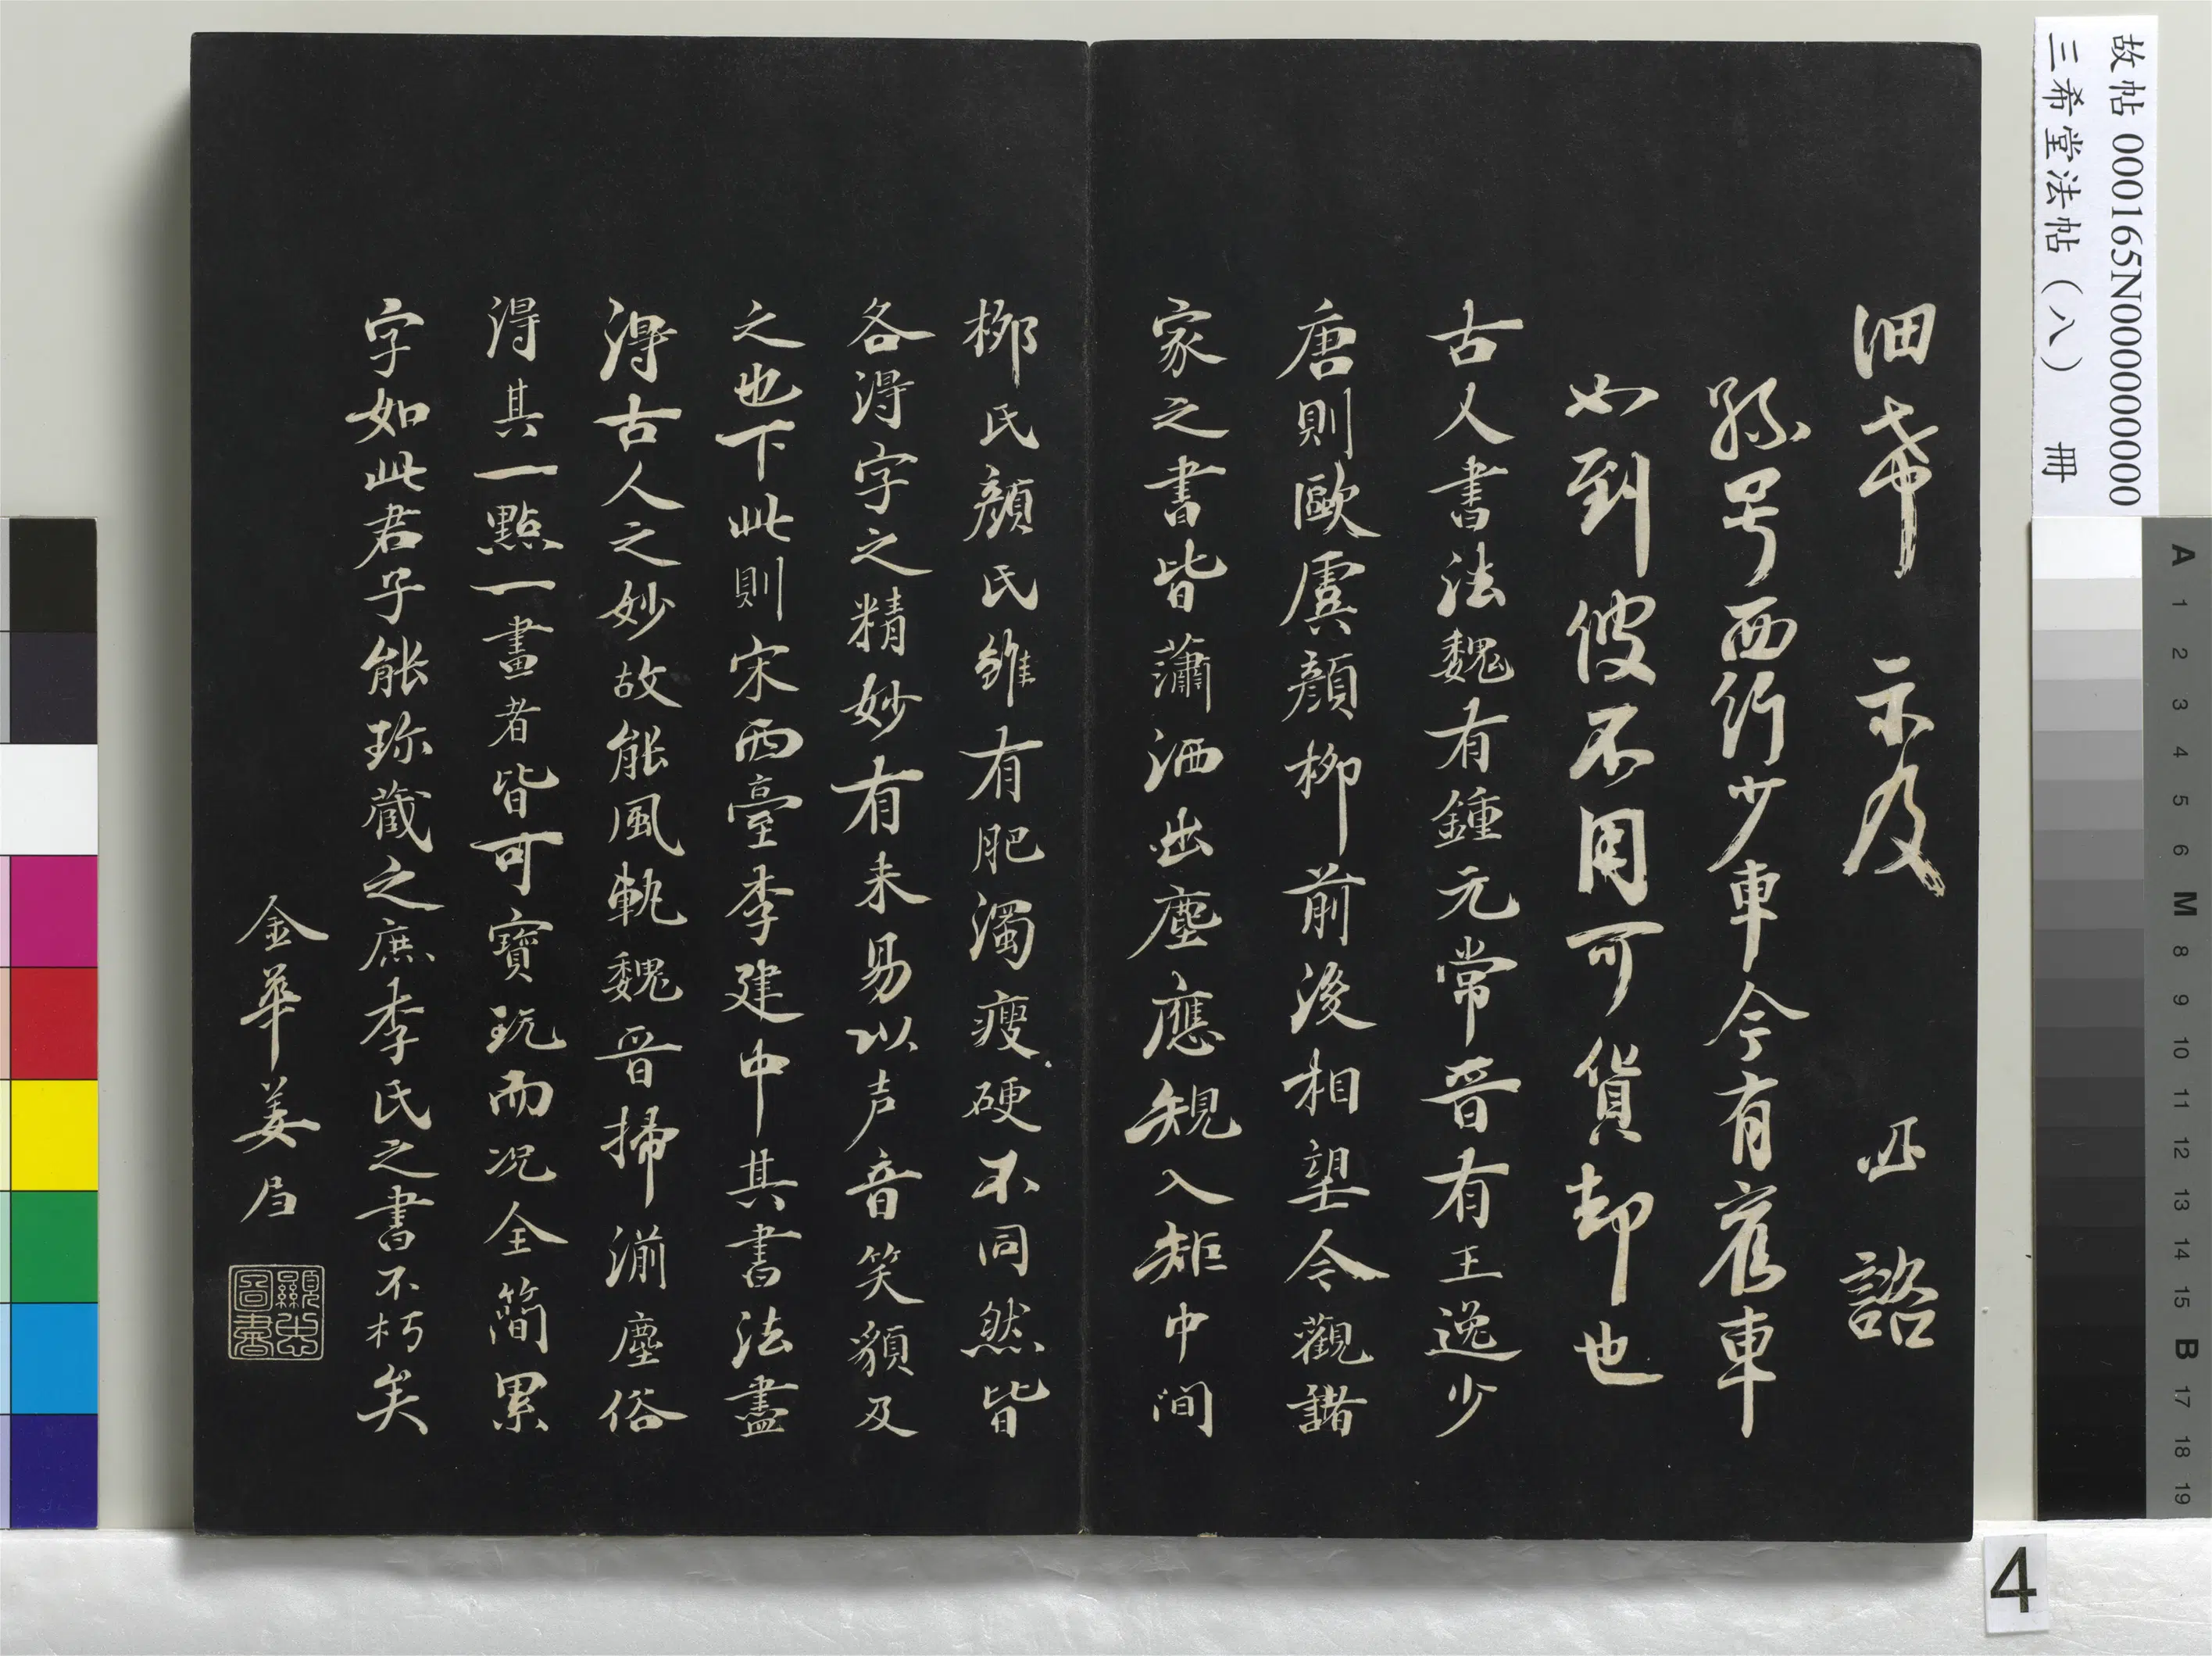 細希 示及 必 諮
孫号西行少車今有舊車
如到彼不用可貨却也
古人書法魏有鍾元常晉有王逸少
唐則歐虞顏柳前後相望今觀諸
家之書皆瀟洒出塵應規入矩中間
柳氏顏氏雖有肥濁瘦硬不同然皆
各得字之精妙有未易以声音笑貌及
之也下此則宋西臺李建中其書法盡
得古人之妙故能風軌魏晉掃湔塵俗
得其一點一畫者皆可寶玩而況全簡累
字如此君子能珎藏之庶李氏之書不朽矣
金華姜
圖書
故帖 000165N000000000
三希堂法帖（八） 冊
A 1 2 3 4 5 6 M 8 9 10 11 12 13 14 15 B 17 18 19
4